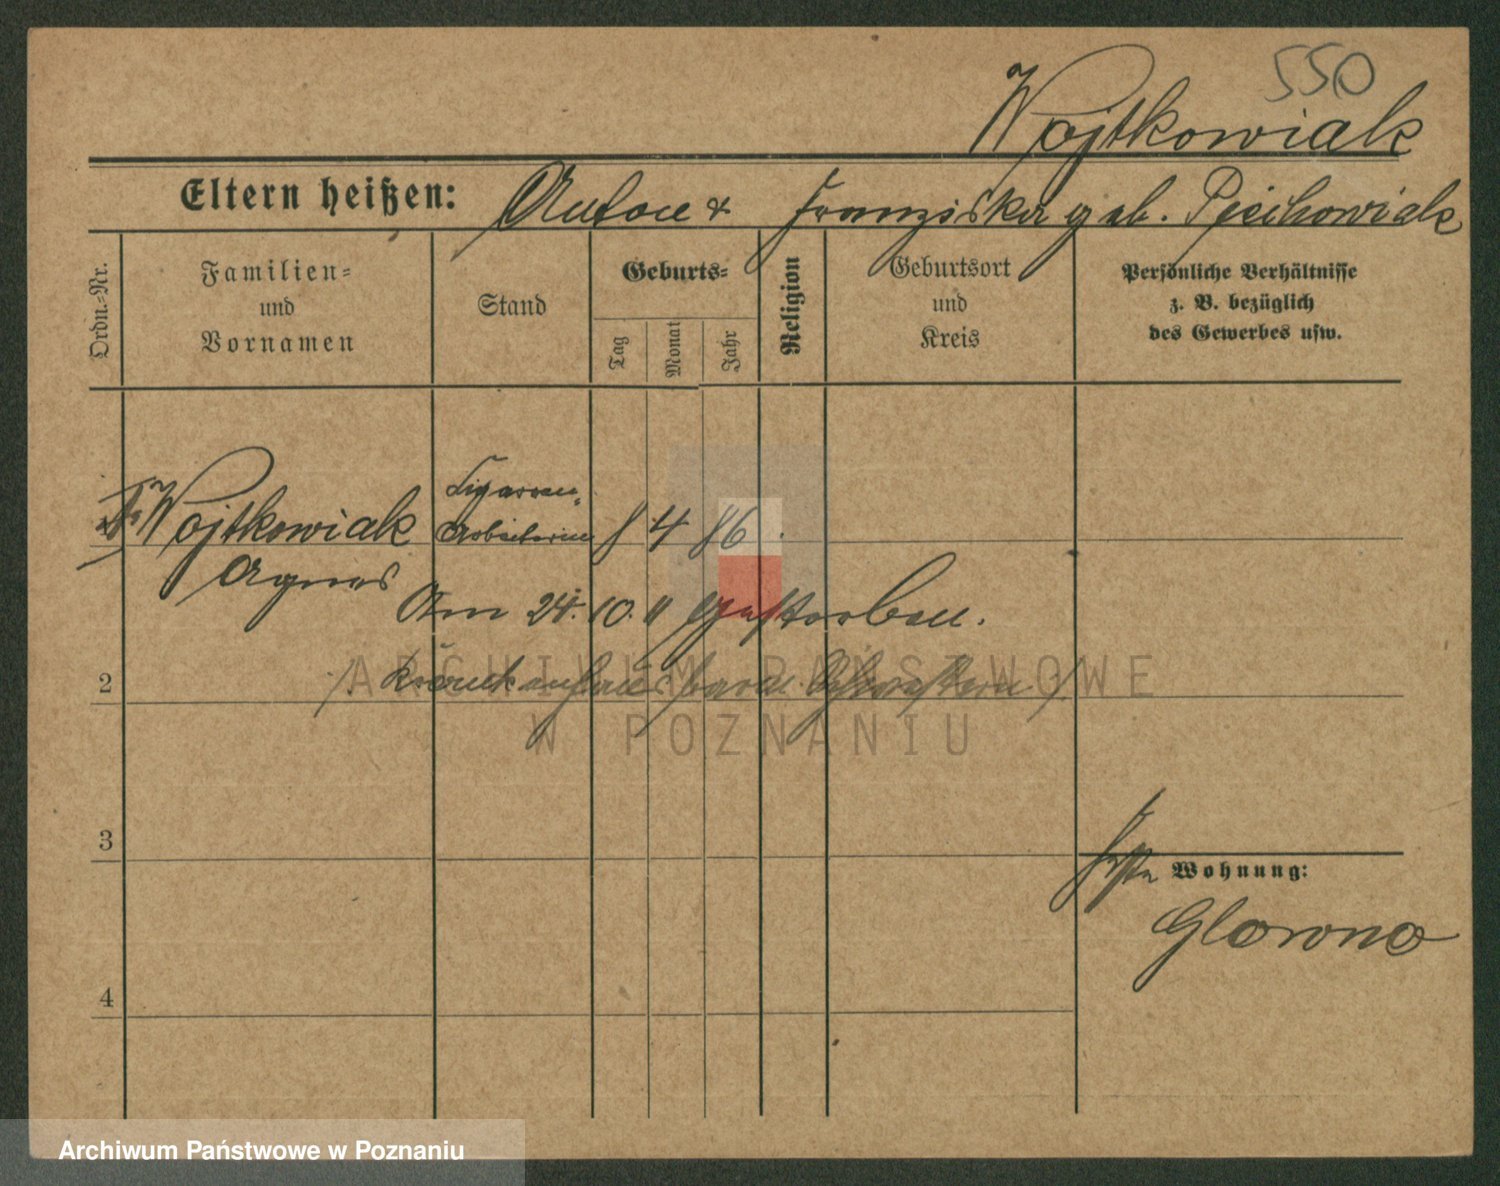 550
Wojtkowiak
Eltern heißen: Anton & Franziska geb. Piechowiak
Ordn.-Nr.
Familien-
und
Vornamen
Stand
Geburts-
Tag
Monat
Jahr
Religion
Geburtsort
und
Kreis
Persönliche Verhältnisse
z. B. bezüglich
des Gewerbes usw.
Wojtkowiak
Agnes
Cigarren-
Arbeiterin
8 4 86
Am 24. 10. 11 gestorben.
(Krankenhaus barm. Schwestern)
2
3
4
Wohnung:
Glowno
ARCHIWUM PAŃSTWOWE
W POZNANIU
Archiwum Państwowe w Poznaniu